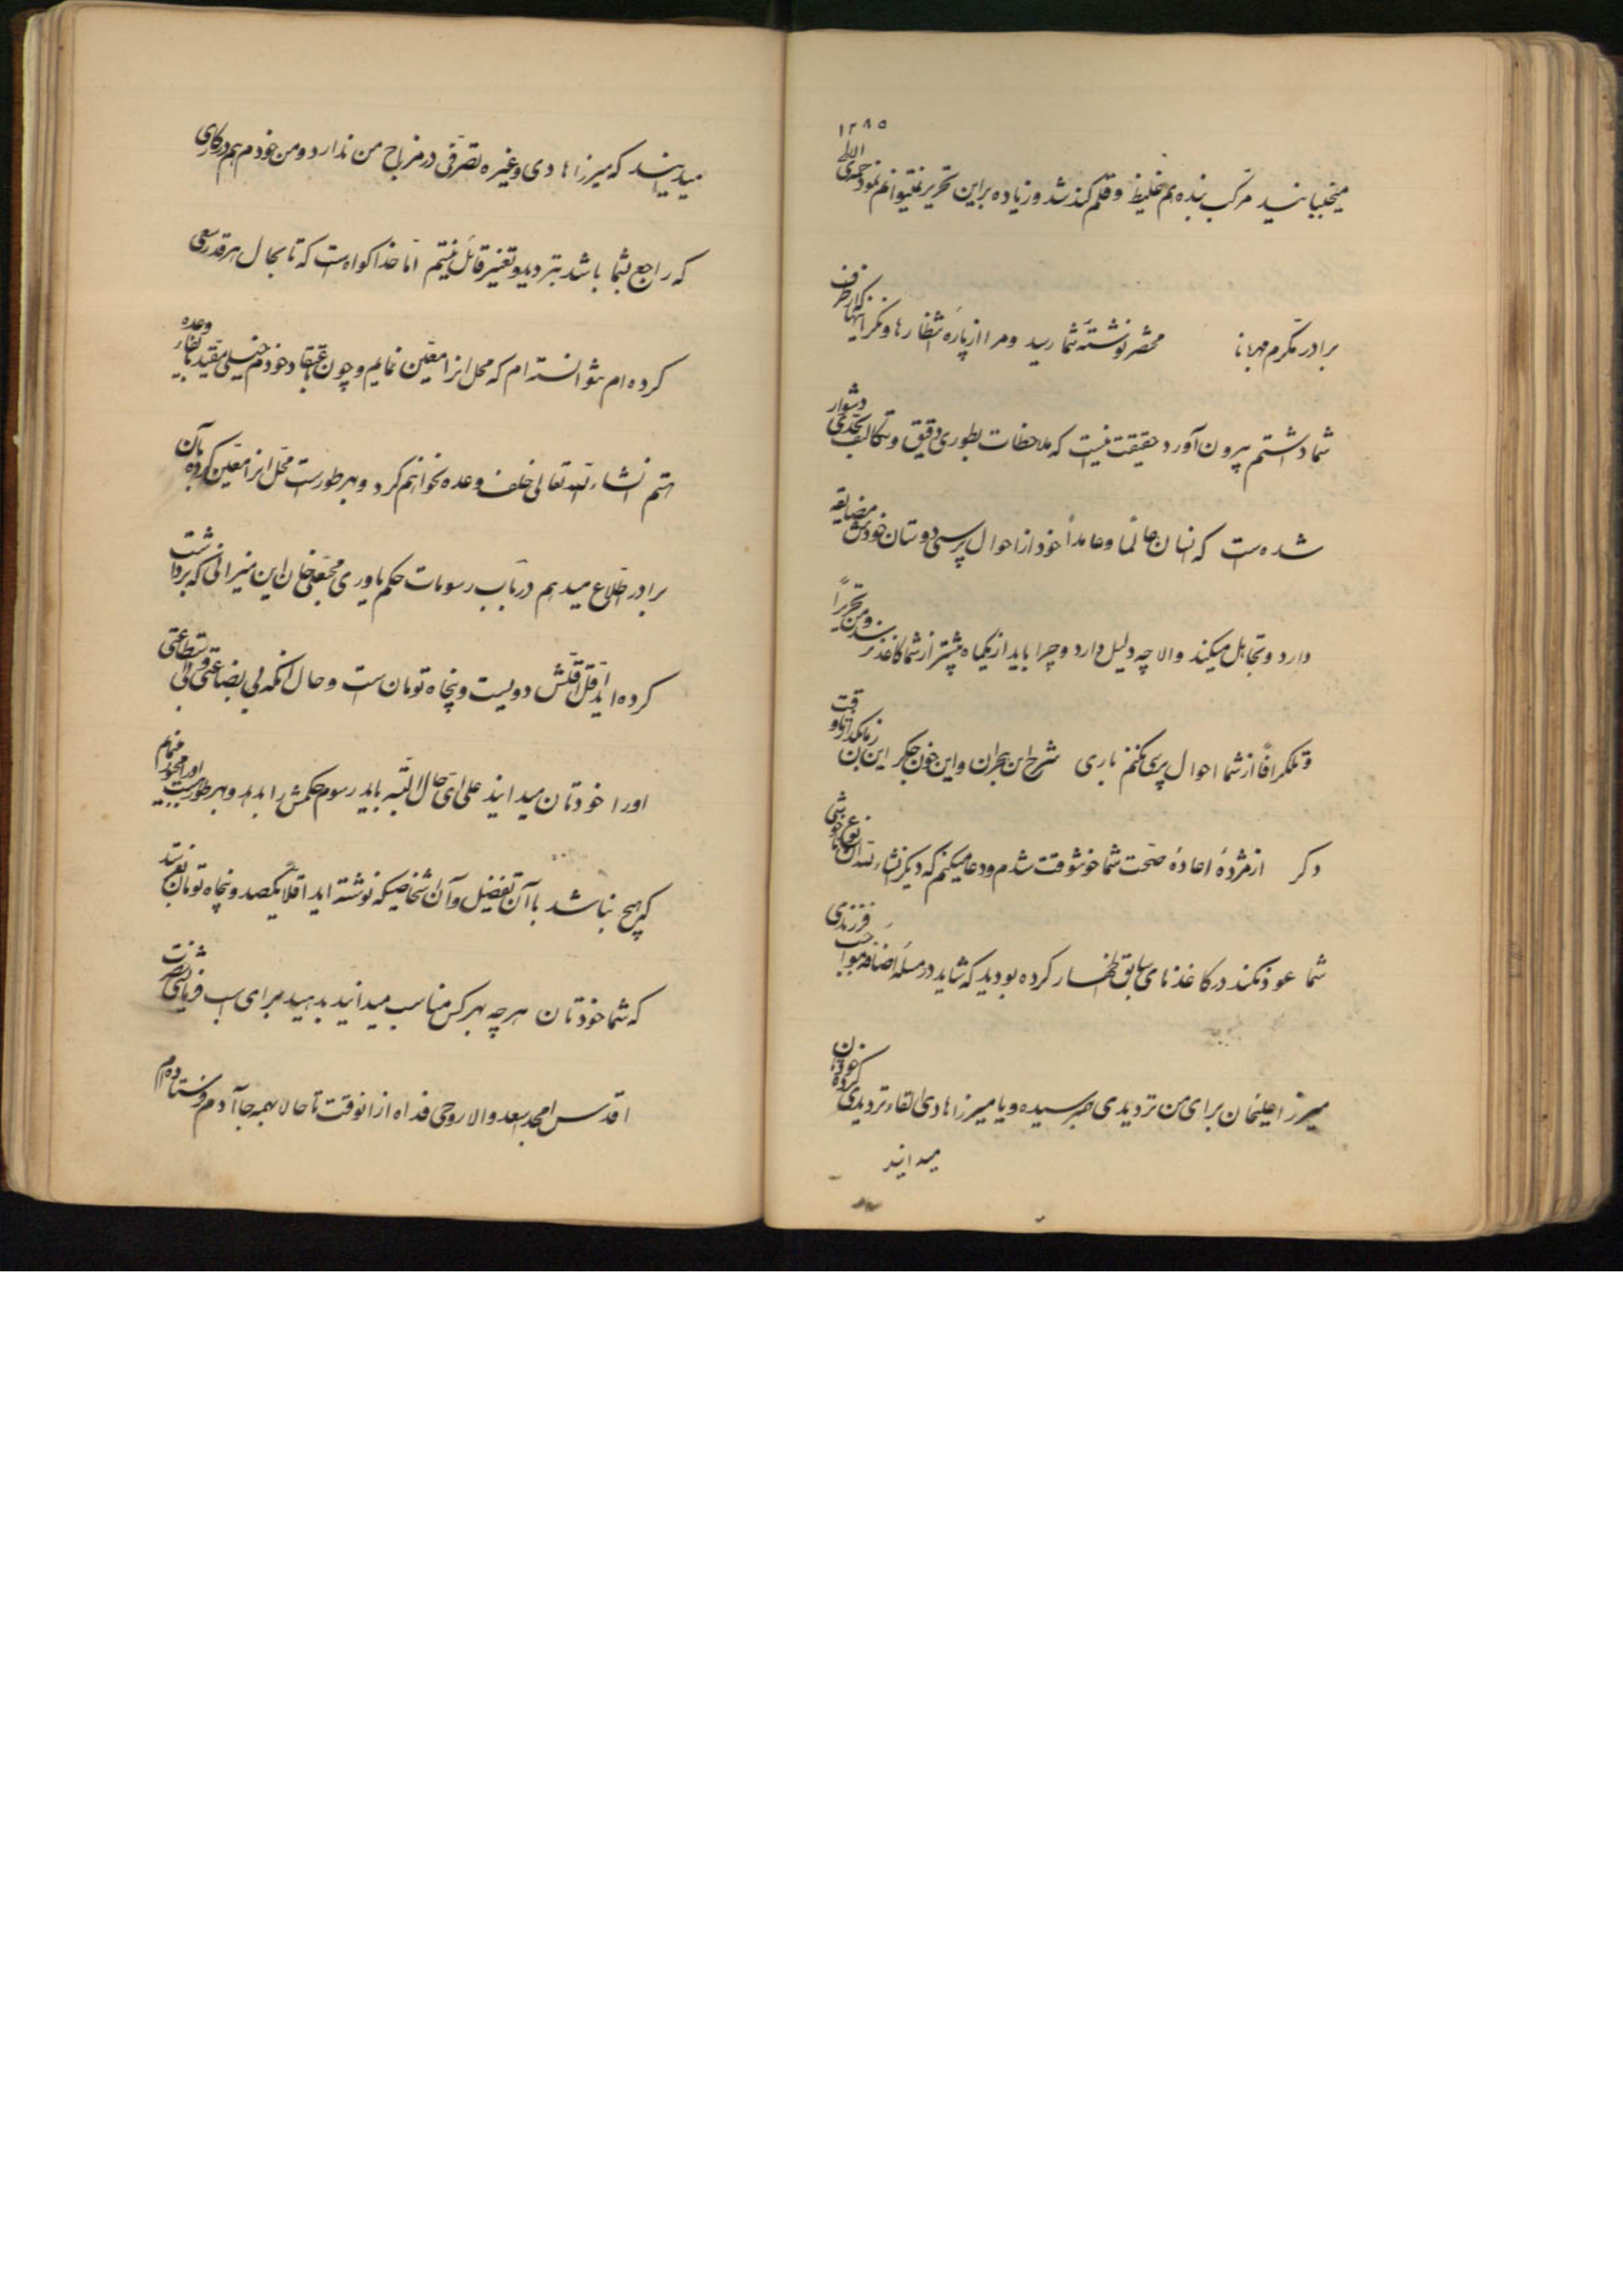 میجنبانید مرکب بنده هم غلیظ و قلم کند شد و زیاده براین تحریر نمیتوانم نمود جمدی الاولی ۱۲۸۵
برادر مکرم مهربانا محضر نوشتهٔ شما رسید و مرا از پارهٔ انتظارها و نگرانیها که از طرف
شما داشتم بیرون آورد حقیقت نیست که ملاحظات بطوری دقیق و تکالیف بحدی دشوار
شده است که انسان عالماً و عامداً خود از احوال پرسی دوستان خودش مضایقه
دارد و تجاهل میکند والا چه دلیل دارد و چرا باید از یکماه بیشتر از شما کاغذ نرسد و من تحریراً
و تلگرافاً از شما احوال پرسی نکنم باری شرح این هجران و این خون جگر این زمان بگذار تا وقت
دگر از مژدهٔ اعادهٔ صحت شما خوشوقت شدم و دعا میکنم که دیگر انشاءالله آن نوع ناخوشی
شما عود نکند در کاغذهای سابق اظهار کرده بودید که شاید در مسئلهٔ اضافه مواجب فرزندی
میرزا علیخان برای من تردیدی بهم رسیده و یا میرزا هادی القاء تردیدی کرده چون
میدانید
میدانید که میرزا هادی و غیره تصرفی در مزاج من ندارد و من خودم هم در کاری
که راجع بشما باشد بتردید و تغییر قائل نیستم اما خدا گواه است که تا بحال هر قدر سعی
کرده ام نتوانسته ام که محل آنرا معین نمایم و چون باعتقاد خودم خیلی مقید بایفاء وعده
هستم انشاءالله تعالی خلف وعده نخواهم کرد و بهر طور است محل آنرا معین کرده بآن
برادر اطلاع میدهم در باب رسومات حکم یاوری نجفعلی خان این میزانی که برداشت
کرده اید اقل اقلش دویست و پنجاه تومان است و حال آنکه بی بضاعتی و بی استطاعتی
او را خودتان میدانید علی ای حال البته باید رسوم حکمش را بدهد و بهر طور هست
که هیچ نباشد با آن تفضیل و آن اشخاصیکه نوشته اید اقلاً یکصد و پنجاه تومان بفرستد
که شما خودتان هرچه بهر کس مناسب میدانید بدهید برای اسب فرمایشی حضرت
اقدس امجد اسعد والا روحی فداه از آنوقت تا حالا بهمه جا آدم فرستاده ام